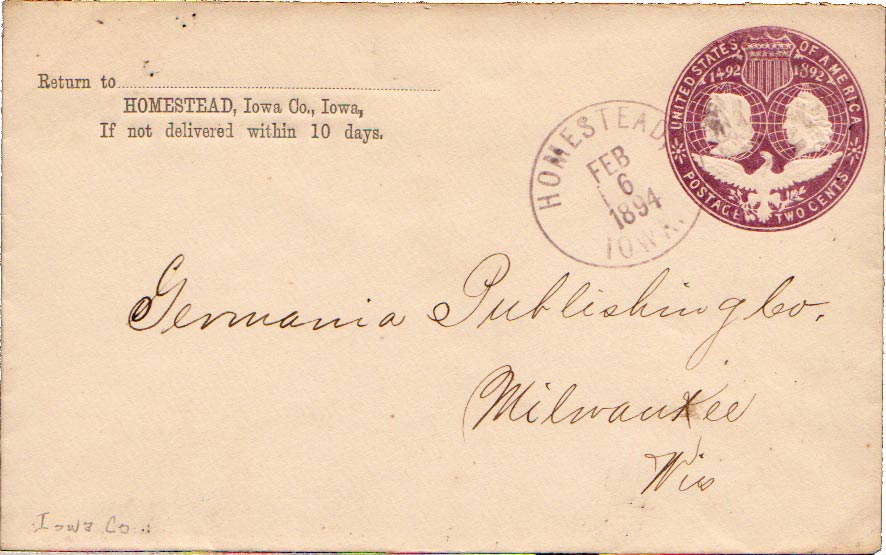 Return to
HOMESTEAD, Iowa Co., Iowa,
If not delivered within 10 days.
HOMESTEAD,
FEB
6
1894
IOWA.
UNITED STATES OF AMERICA
1492 1892
POSTAGE TWO CENTS
Germania Publishing Co.
Milwaukee
Wis
Iowa Co.